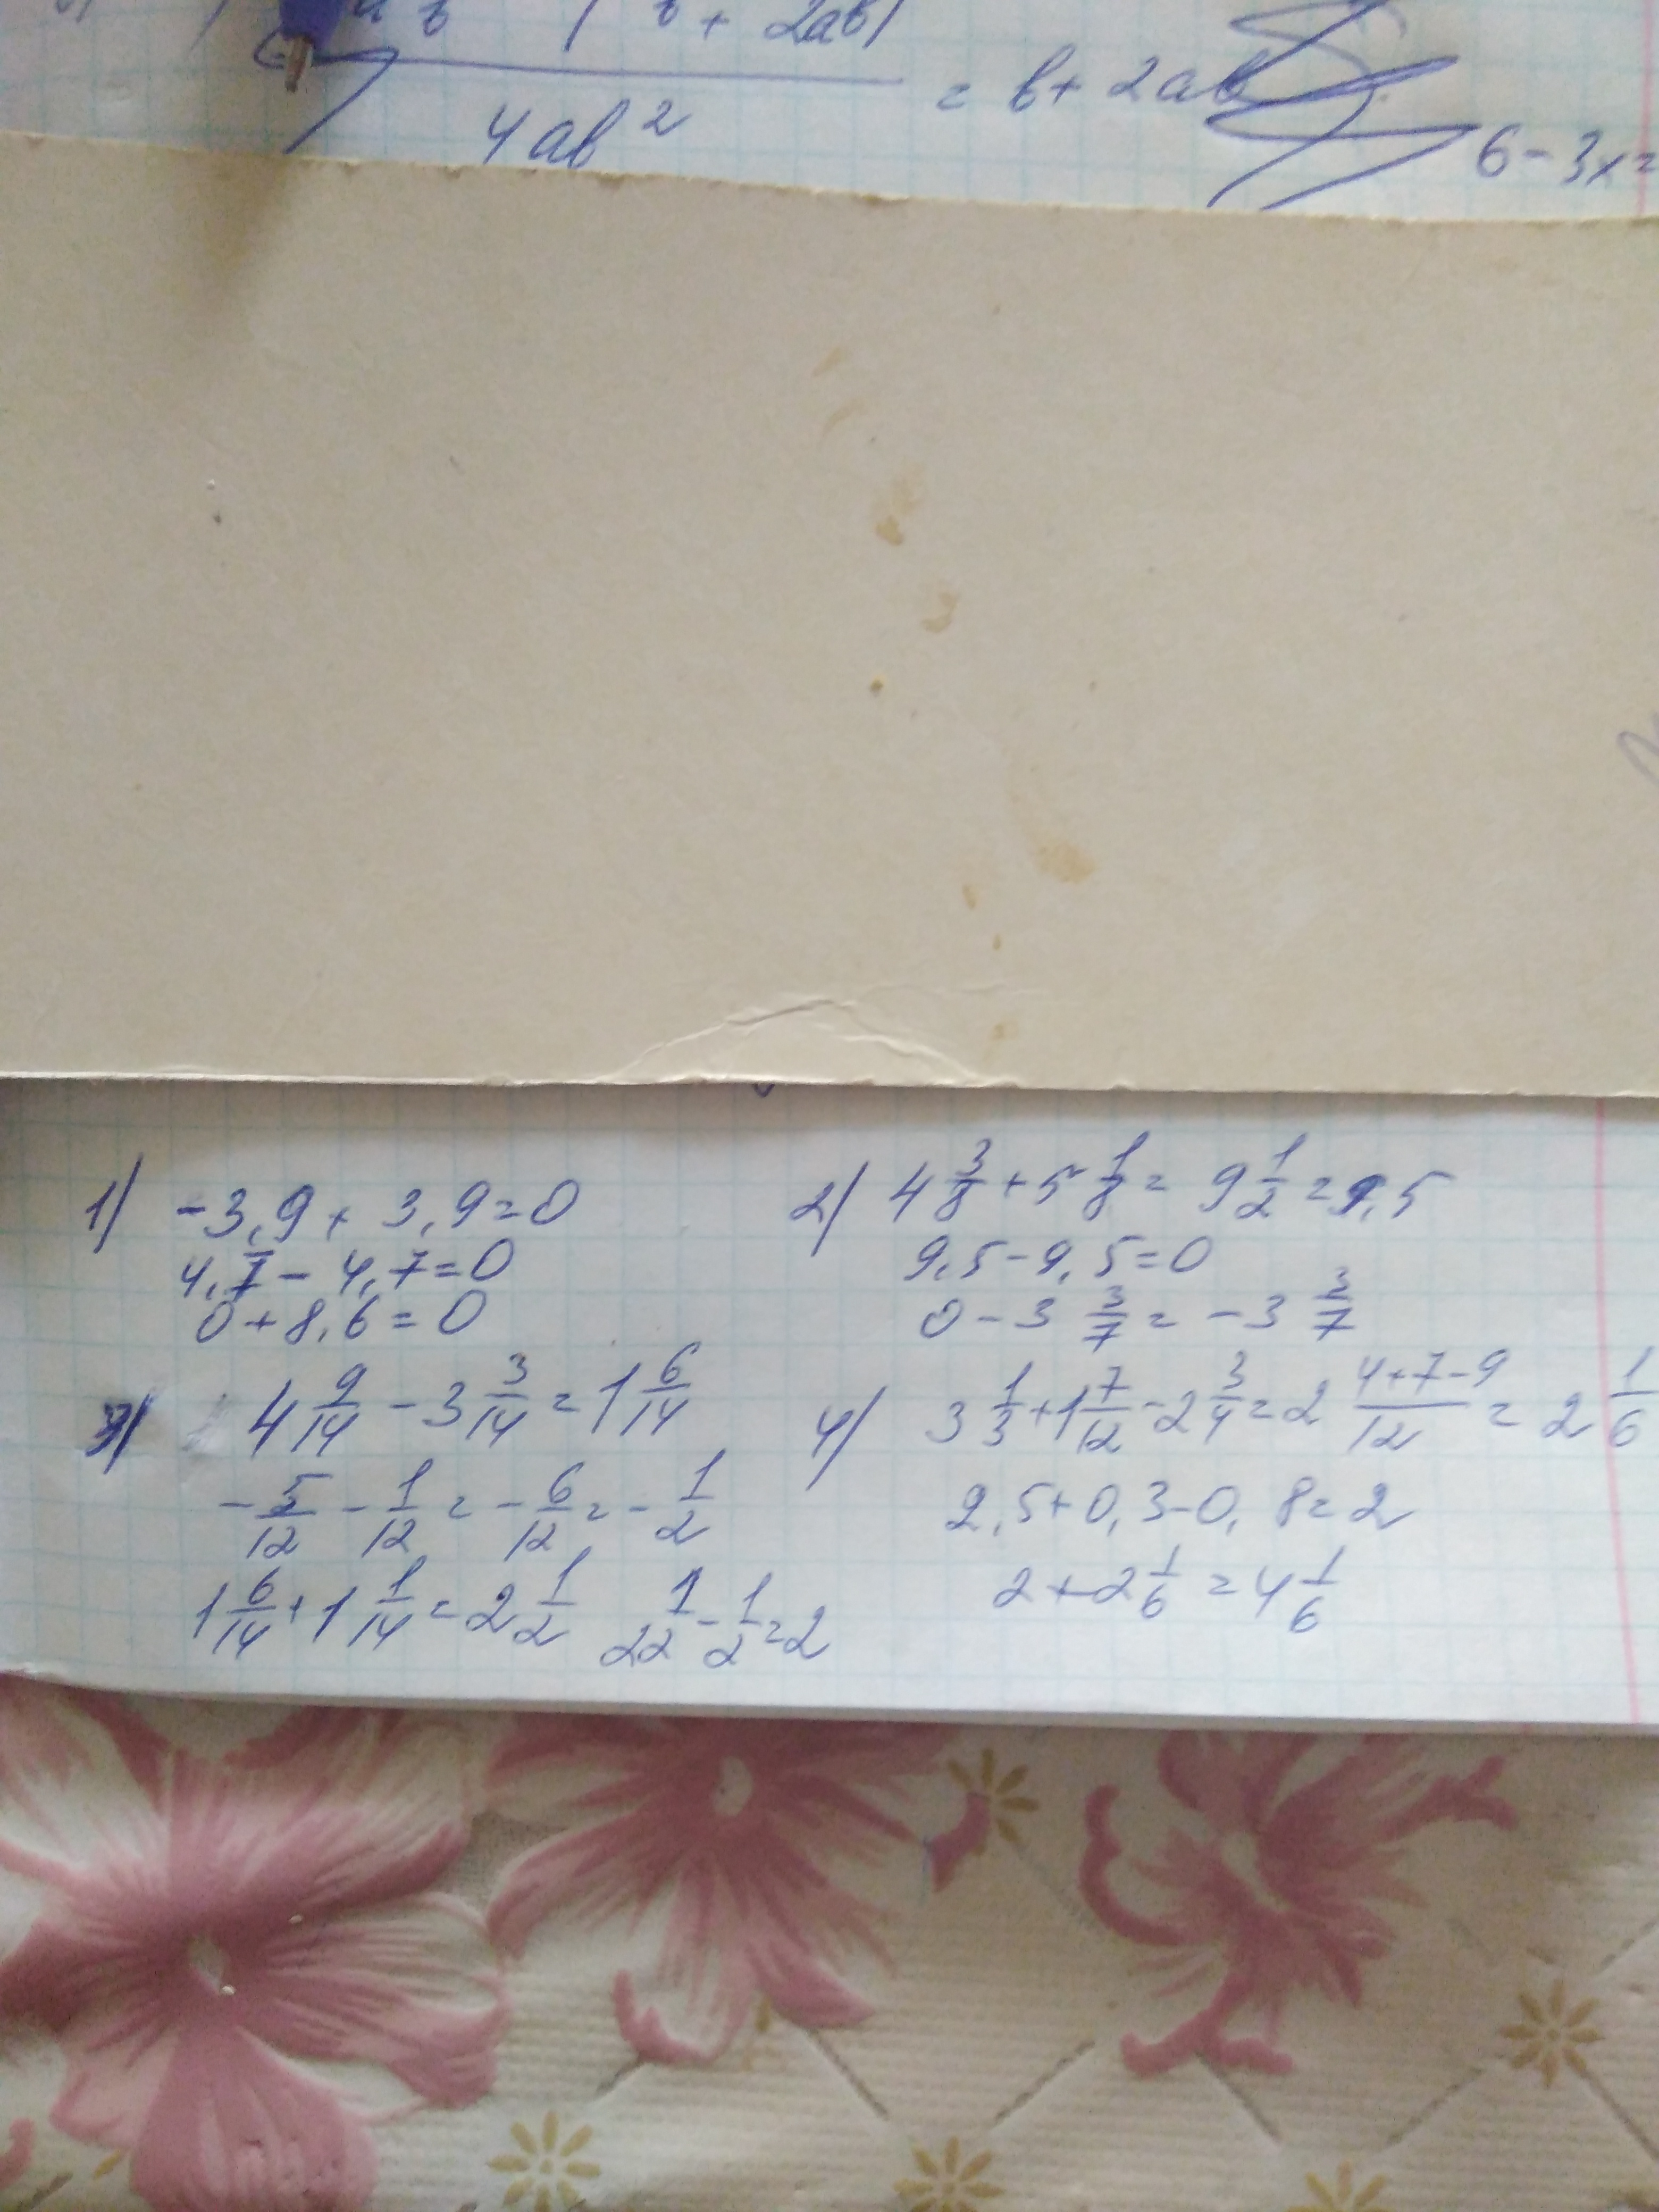 b + 2ab)
4ab² = b + 2ab
6 - 3x =
1) -3,9 + 3,9 = 0
4,7 - 4,7 = 0
0 + 8,6 = 0
2) 4 3/8 + 5 1/8 = 9 1/2 = 9,5
9,5 - 9,5 = 0
0 - 3 3/7 = - 3 3/7
3) 4 9/14 - 3 3/14 = 1 6/14
- 5/12 - 1/12 = - 6/12 = - 1/2
1 6/14 + 1 1/14 = 2 1/2 2 1/2 - 1/2 = 2
4) 3 1/3 + 1 7/12 - 2 3/4 = 2 (4+7-9)/12 = 2 1/6
2,5 + 0,3 - 0,8 = 2
2 + 2 1/6 = 4 1/6